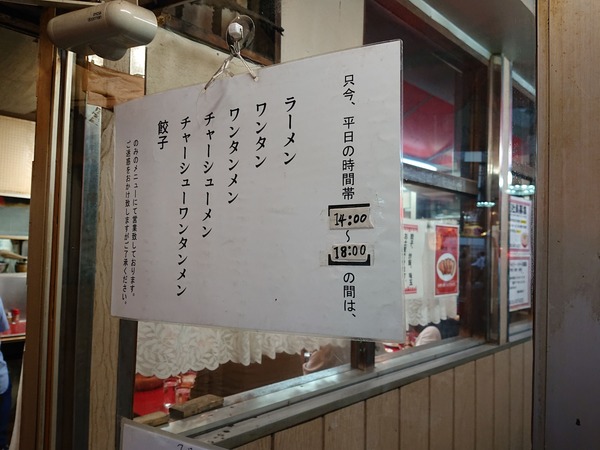 只今、平日の時間帯
14:00
～
18:00
の間は、
ラーメン
ワンタン
ワンタンメン
チャーシューメン
チャーシューワンタンメン
餃子
のみのメニューにて営業致しております。
ご迷惑をおかけ致しますがご了承ください。